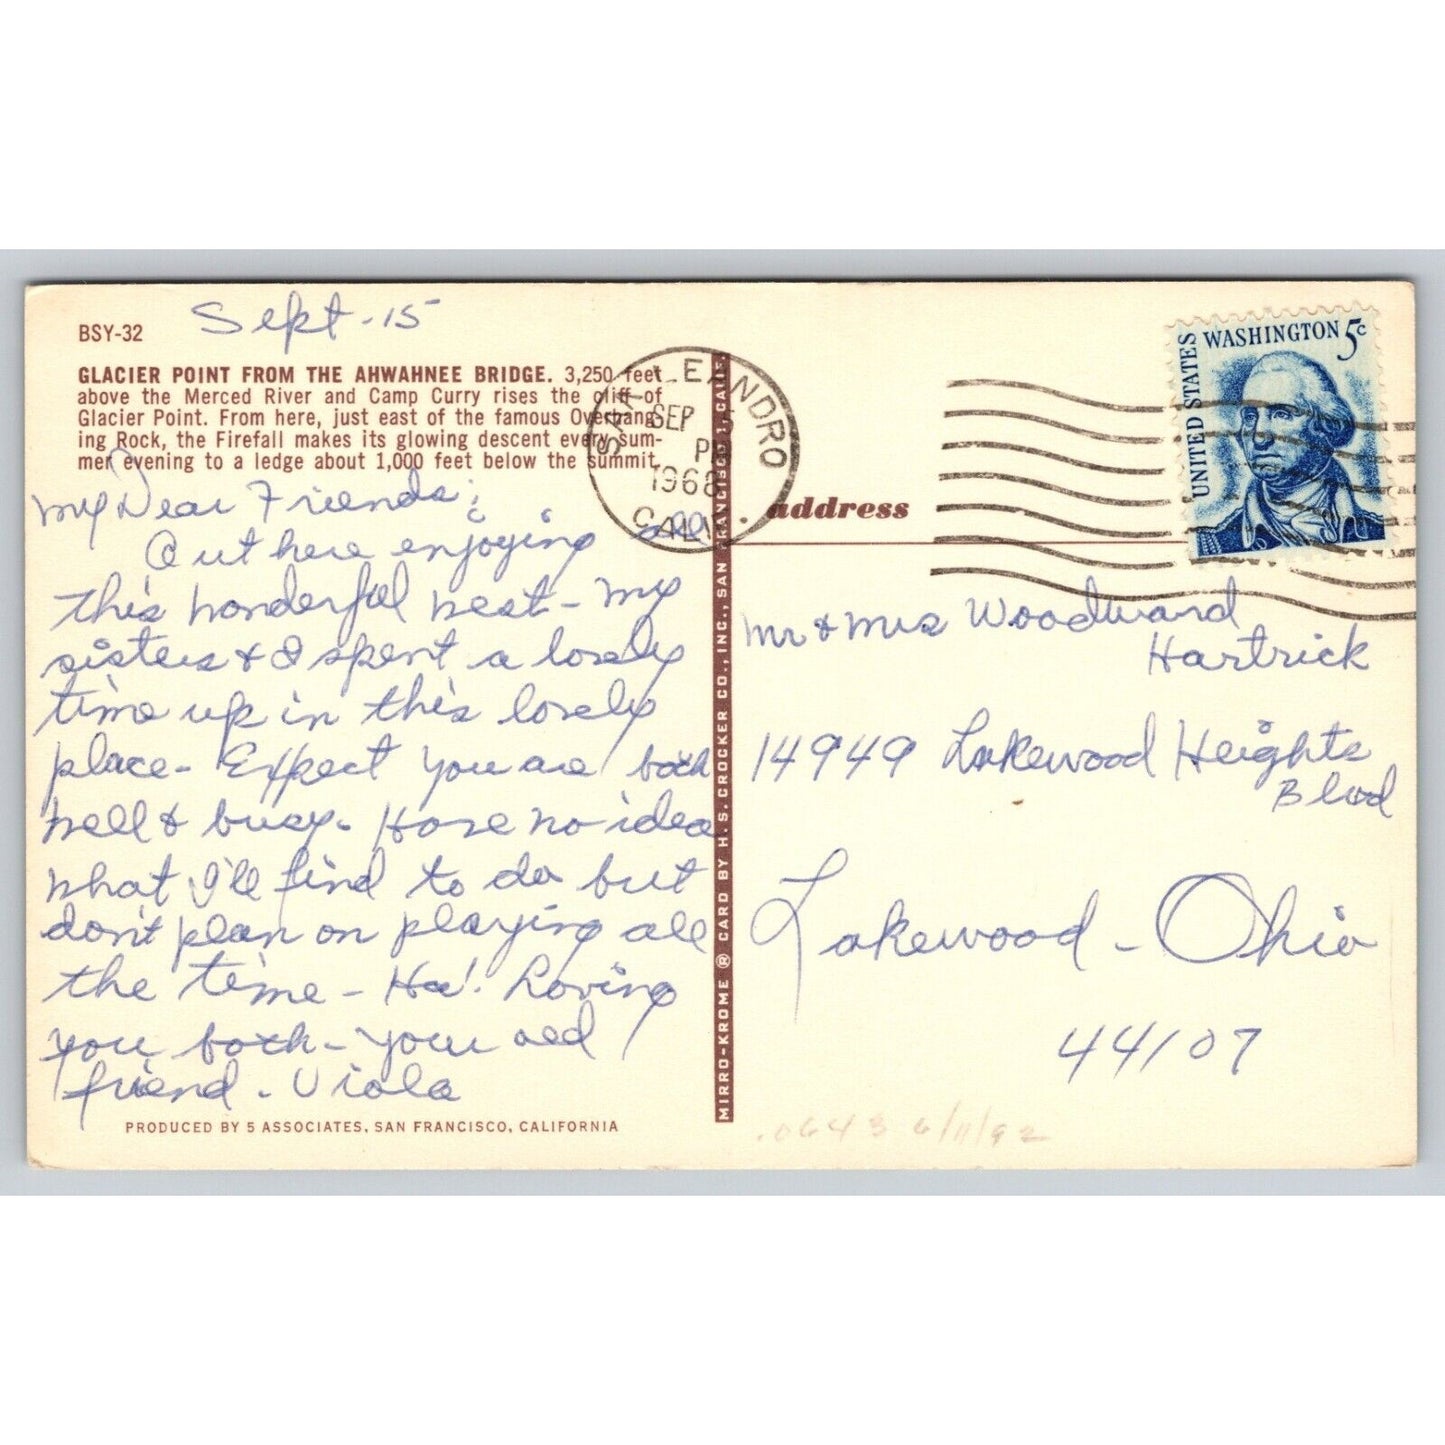 BSY-32
Sept-15
GLACIER POINT FROM THE AHWAHNEE BRIDGE. 3,250 feet
above the Merced River and Camp Curry rises the cliff of
Glacier Point. From here, just east of the famous Overhang-
ing Rock, the Firefall makes its glowing descent every sum-
mer evening to a ledge about 1,000 feet below the summit.
My Dear Friends;
Out here enjoying all
this wonderful rest - my
sisters & I spent a lovely
time up in this lovely
place - Expect you are both
well & busy. Have no idea
what I'll find to do but
don't plan on playing all
the time - Ha! Loving
you both - your old
friend - Viola
PRODUCED BY 5 ASSOCIATES, SAN FRANCISCO, CALIFORNIA
MIRRO-KROME ® CARD BY H.S. CROCKER CO., INC., SAN FRANCISCO 1, CALIF.
SAN LEANDRO
SEP 15
PM
1968
CALIF.
address
UNITED STATES
WASHINGTON 5c
Mr & Mrs Woodward
Hartrick
14949 Lakewood Heights
Blvd
Lakewood - Ohio
44107
.0643 6/11/92